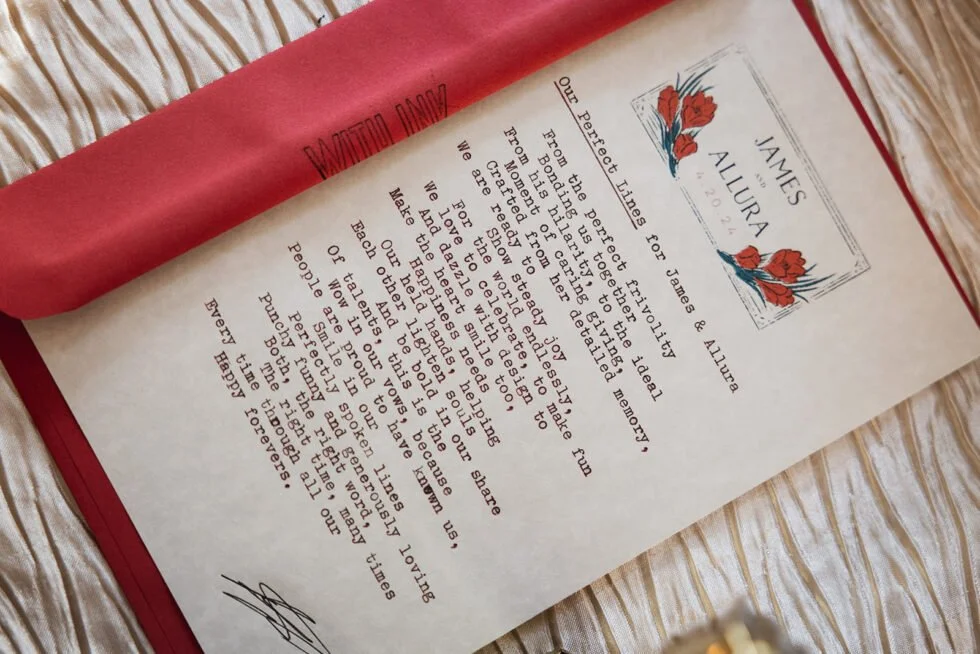 JAMES
AND
ALLURA
4.20.24
Our Perfect Lines for James & Allura
From the perfect frivolity
Bonding us together
From his hilarity, to the ideal
Moment of caring giving,
Crafted from her detailed memory,
We are ready
Show steady joy
For the world endlessly,
We love to celebrate, to make fun
And dazzle with design to
Make the heart smile too,
Happiness needs
Our held hands, helping
Each other lighten souls
And be bold in our share
Of talents, this is the
Wow in our vows, because
People are proud to have known us,
Smile in our
Perfectly spoken lines
Punchy funny and generously loving
Both, the right word,
The right time, many times
Every time through all our
Happy forevers.
WITH INK